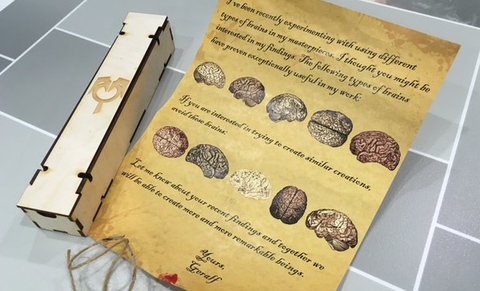 I've been recently experimenting with using different
types of brains in my masterpieces. I thought, you might be
interested in my findings. The following types of brains
have proven exceptionally useful in my work:
If you are interested in trying to create similar creations,
avoid those brains:
Let me know about your recent findings and together we
will be able to create more and more remarkable beings.
Yours,
Goralf